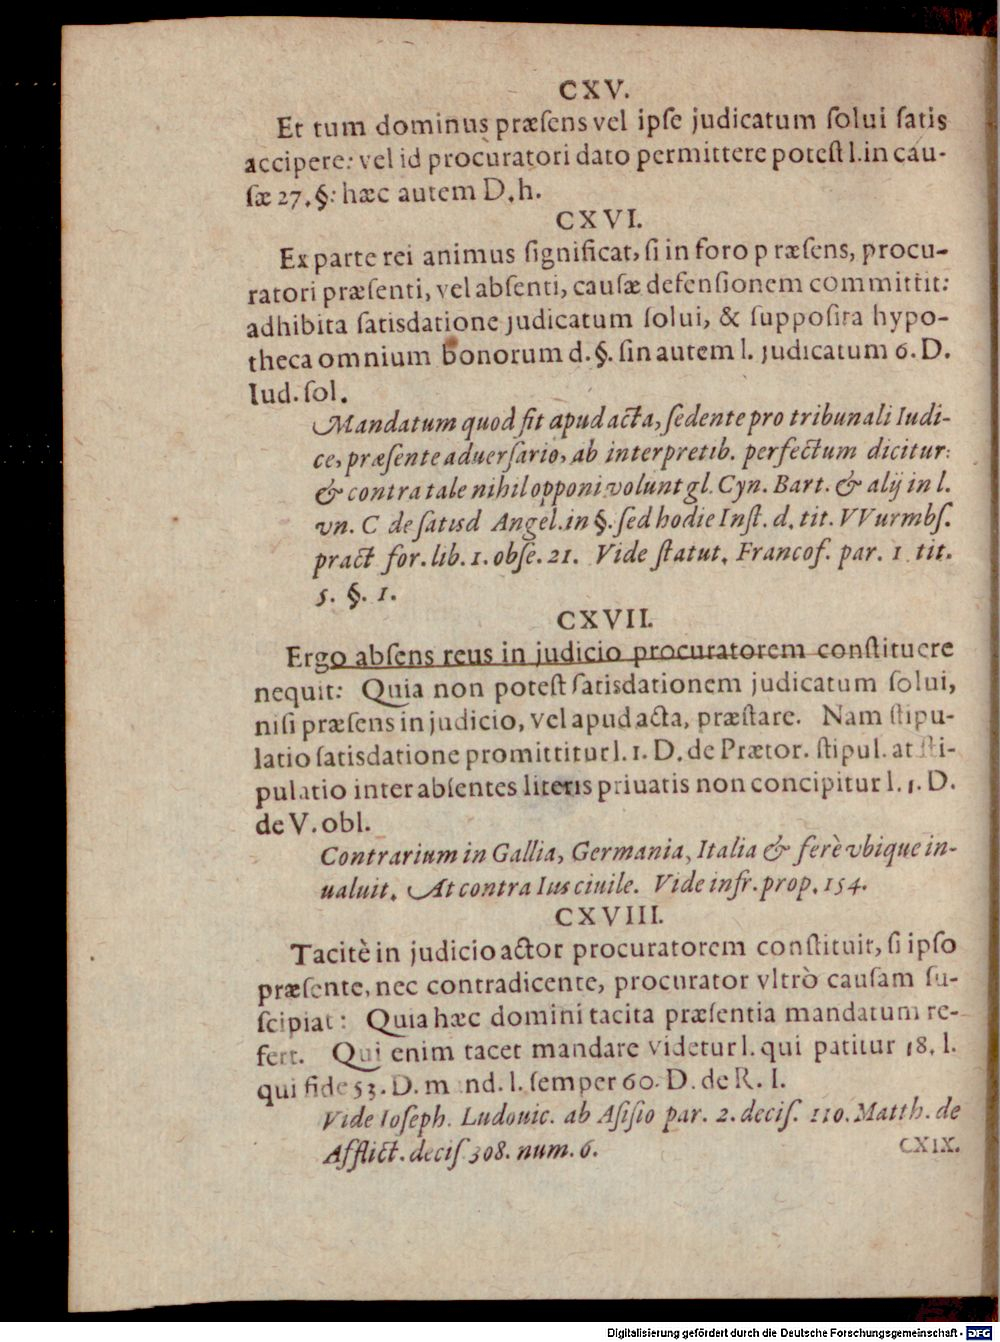 CXV.
Et tum dominus præſens vel ipſe judicatum ſolui ſatis
accipere: vel id procuratori dato permittere poteſt l. in cau-
ſæ 27. §: hæc autem D. h.
CXVI.
Ex parte rei animus ſignificat, ſi in foro præſens, procu-
ratori præſenti, vel abſenti, cauſæ defenſionem committit:
adhibita ſatisdatione judicatum ſolui, & ſuppoſita hypo-
theca omnium bonorum d. §. ſin autem l. judicatum 6. D.
Iud. ſol.
Mandatum quod fit apud acta, ſedente pro tribunali Iudi-
ce, præſente aduerſario, ab interpretib. perfectum dicitur:
& contra tale nihil opponi volunt gl. Cyn. Bart. & alij in l.
vn. C de ſatisd Angel. in §. ſed hodie Inſt. d. tit. VVurmbſ.
pract for. lib. 1. obſe. 21. Vide ſtatut. Francof. par. 1 tit.
5. §. 1.
CXVII.
Ergo abſens reus in judicio procuratorem conſtituere
nequit: Quia non poteſt ſatisdationem judicatum ſolui,
niſi præſens in judicio, vel apud acta, præſtare. Nam ſtipu-
latio ſatisdatione promittitur l. 1. D. de Prætor. ſtipul. at ſti-
pulatio inter abſentes literis priuatis non concipitur l. 1. D.
de V. obl.
Contrarium in Gallia, Germania, Italia & ferè vbique in-
ualuit. At contra Ius ciuile. Vide infr. prop. 154.
CXVIII.
Tacitè in judicio actor procuratorem conſtituit, ſi ipſo
præſente, nec contradicente, procurator vltrò cauſam ſu-
ſcipiat: Quia hæc domini tacita præſentia mandatum re-
fert. Qui enim tacet mandare videtur l. qui patitur 18. l.
qui fide 53. D. m nd. l. ſemper 60. D. de R. I.
Vide Ioſeph. Ludouic. ab Aſiſio par. 2. deciſ. 110. Matth. de
Afflict. deciſ 308. num. 6.
CXIX.
Digitalisierung gefördert durch die Deutsche Forschungsgemeinschaft - DFG